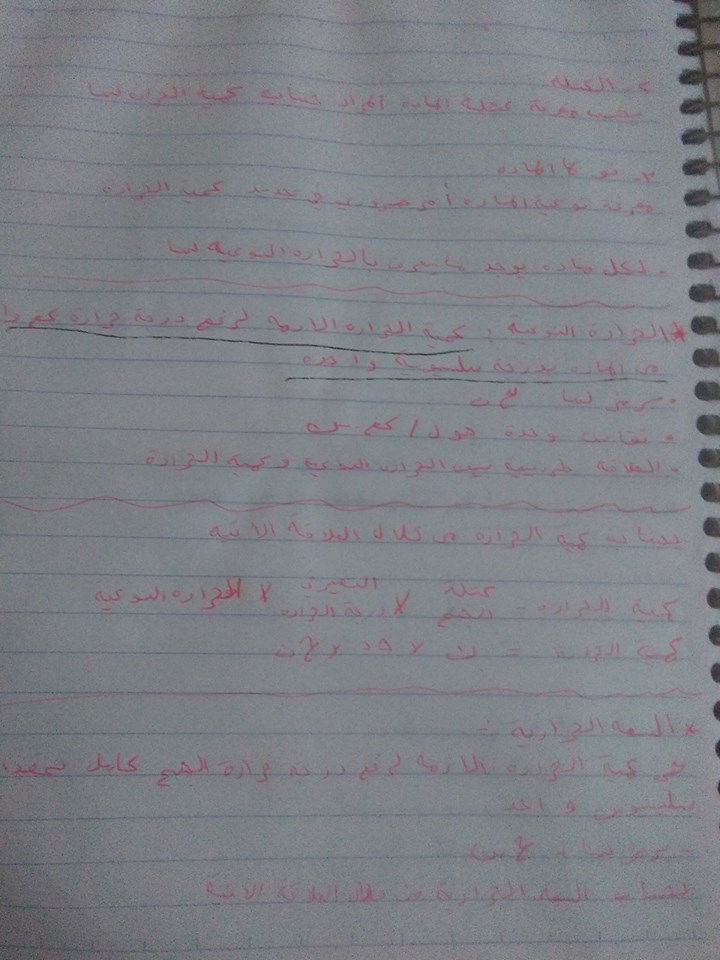 ٢- الكتلة
يجب معرفة كتلة المادة المراد حساب كمية الحرارة لها
٣- نوع المادة
معرفة نوعية المادة أمر ضروري في تحديد كمية الحرارة
• لكل مادة يوجد ما يعرف بالحرارة النوعية لها
* الحرارة النوعية : كمية الحرارة الازمه لرفع درجة حرارة كغم وا
من المادة بدرجة سلسيوس واحدة
• يرمز لها حن
• تقاس بوحدة جول / كغم . س
• العلاقة طرديه بين الحراره النوعيه وكمية الحرارة
لحساب كمية الحراره من خلال العلاقة الاتيه
كمية الحراره = كتلة الجسم × التغير في درجة الحراره × الحراره النوعيه
كمية الحراره = ك × Δد × حن
* السعه الحرارية :-
هي كمية الحراره الازمه لرفع درجة حرارة الجسم كامل بمقدار
سلسيوس واحد
- يرمز لها
لحساب السعه الحرارية من خلال العلاقة الاتية